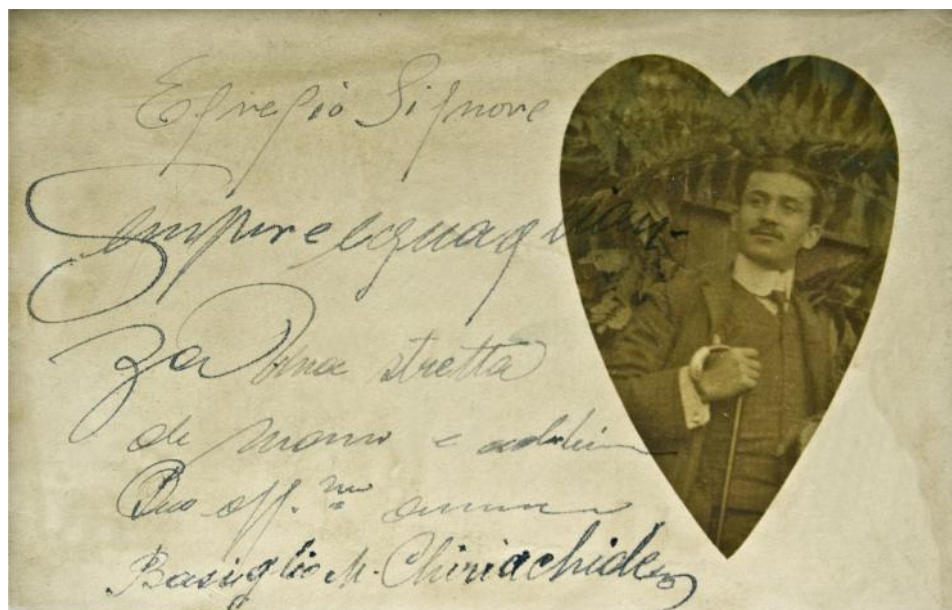 Egregio Signore
Sempre eguaglian-
za una stretta
di mano e addio
Suo aff.mo
Basiglio M. Chiriachides